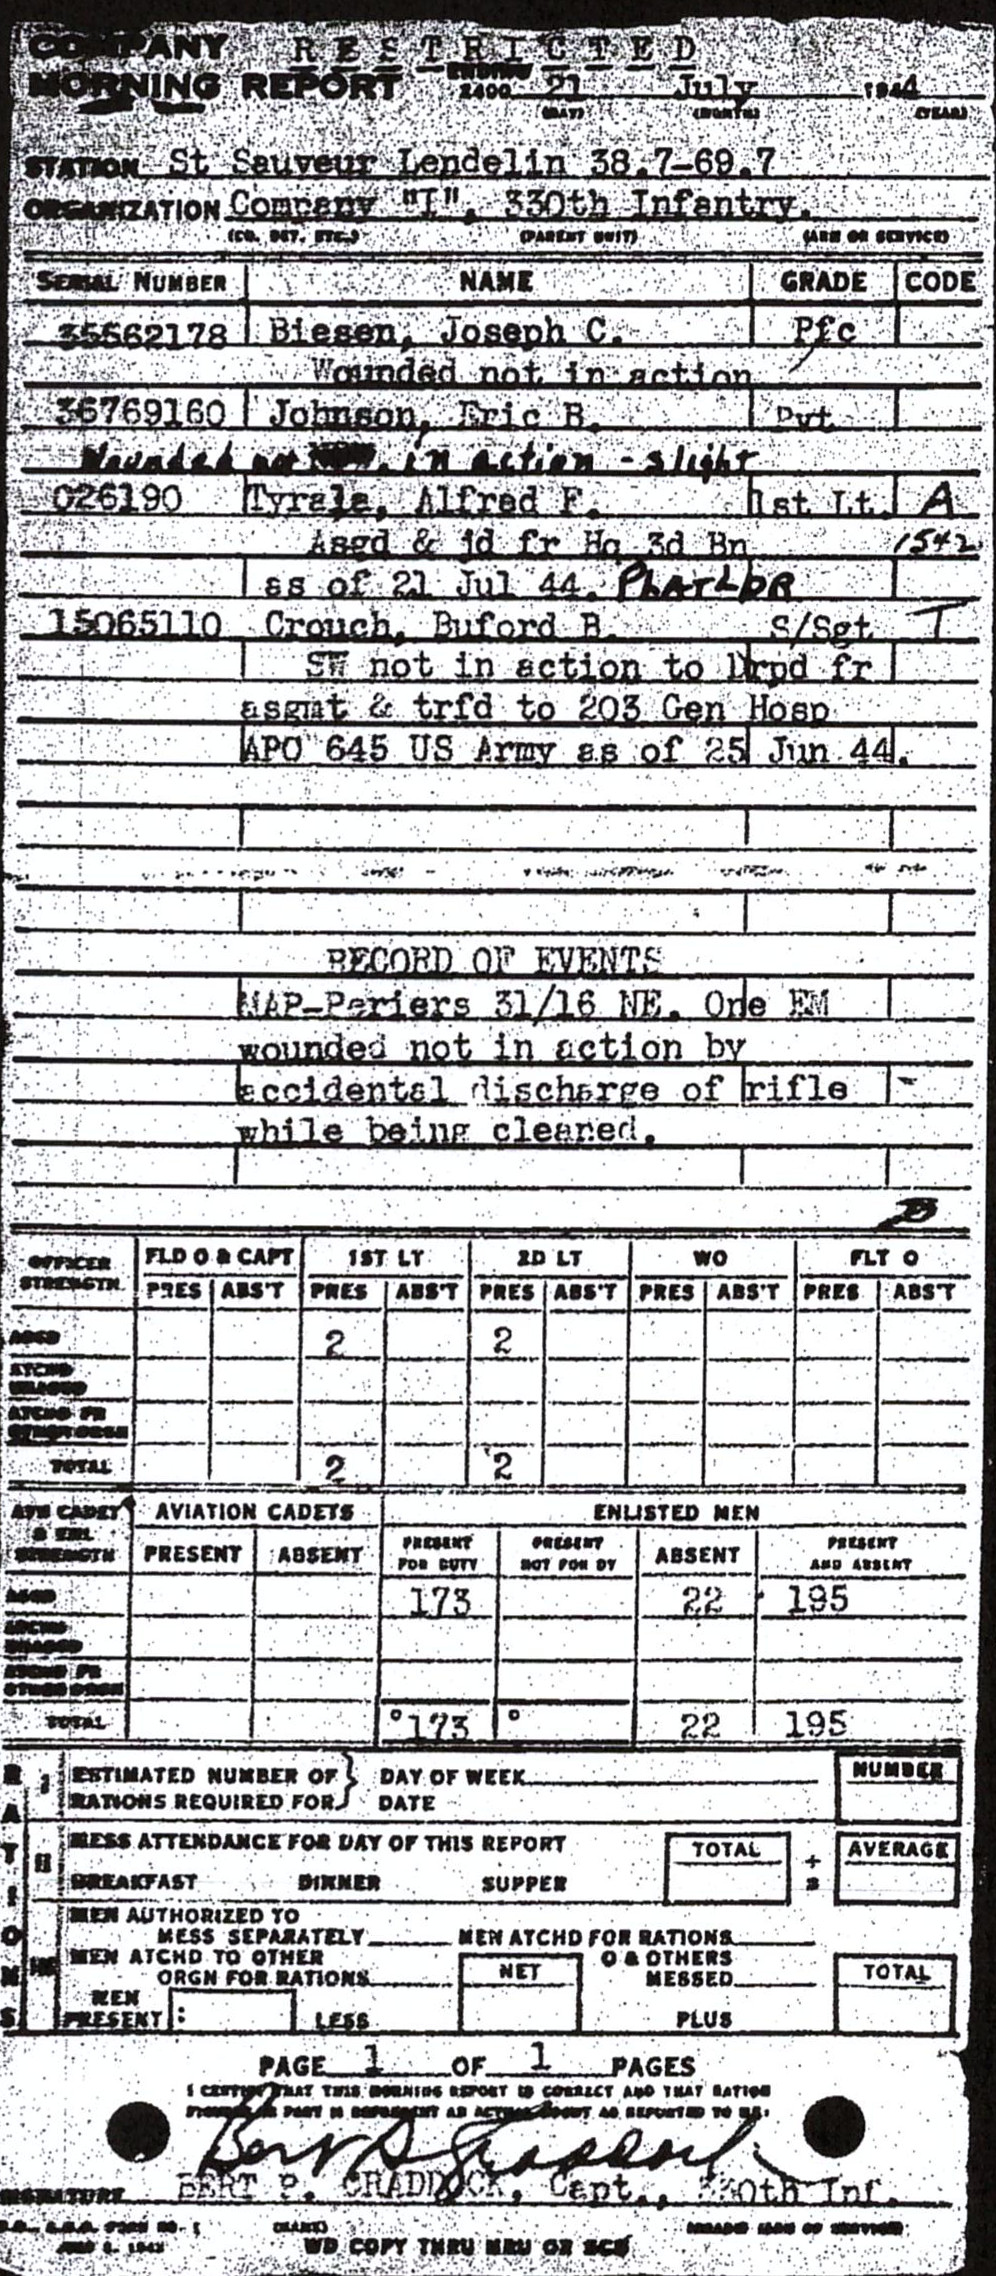 COMPANY RESTRICTED
MORNING REPORT ENDING 2400 21 July 1944
(DAY) (MONTH) (YEAR)
STATION St Sauveur Lendelin 38.7-69.7
ORGANIZATION Company "I", 330th Infantry.
(CO. DET. ETC.) (PARENT UNIT) (ARM OR SERVICE)
SERIAL NUMBER NAME GRADE CODE
35562178 Biesen, Joseph C. Pfc
Wounded not in action
36769160 Johnson, Eric B. Pvt
Wounded not in action - slight
026190 Tyrala, Alfred F. 1st Lt. A
Asgd & jd fr Hq 3d Bn 1542
as of 21 Jul 44. PLAT LDR
15065110 Crouch, Buford B. S/Sgt T
SW not in action to Drpd fr
asgmt & trfd to 203 Gen Hosp
APO 645 US Army as of 25 Jun 44.
RECORD OF EVENTS
MAP-Periers 31/16 NE. One EM
wounded not in action by
accidental discharge of rifle
while being cleaned.
OFFICER STRENGTH FLD O & CAPT 1ST LT 2D LT WO FLT O
PRES ABS'T PRES ABS'T PRES ABS'T PRES ABS'T PRES ABS'T
ASGD 2 2
ATCHD UNASGD
ATCHD FR OTHER ORGN
TOTAL 2 2
AVN CADET & ENL STRENGTH AVIATION CADETS ENLISTED MEN
PRESENT ABSENT PRESENT FOR DUTY PRESENT NOT FOR DY ABSENT PRESENT AND ABSENT
ASGD 173 22 195
ATCHD UNASGD
ATCHD FR OTHER ORGN
TOTAL 173 22 195
RATIONS
I ESTIMATED NUMBER OF } DAY OF WEEK NUMBER
RATIONS REQUIRED FOR } DATE
II MESS ATTENDANCE FOR DAY OF THIS REPORT TOTAL ÷ AVERAGE
BREAKFAST DINNER SUPPER =
III MEN AUTHORIZED TO
MESS SEPARATELY MEN ATCHD FOR RATIONS
MEN ATCHD TO OTHER O & OTHERS
ORGN FOR RATIONS NET MESSED TOTAL
MEN
PRESENT: LESS PLUS
PAGE 1 OF 1 PAGES
I CERTIFY THAT THIS MORNING REPORT IS CORRECT AND THAT RATION
FIGURES IN PART III REPRESENT AN ACTUAL COUNT AS REPORTED TO ME:
SIGNATURE BERT P. CRADDOCK, Capt., 330th Inf.
(NAME) (GRADE) (ARM OR SERVICE)
WD COPY THRU MRU OR SCU